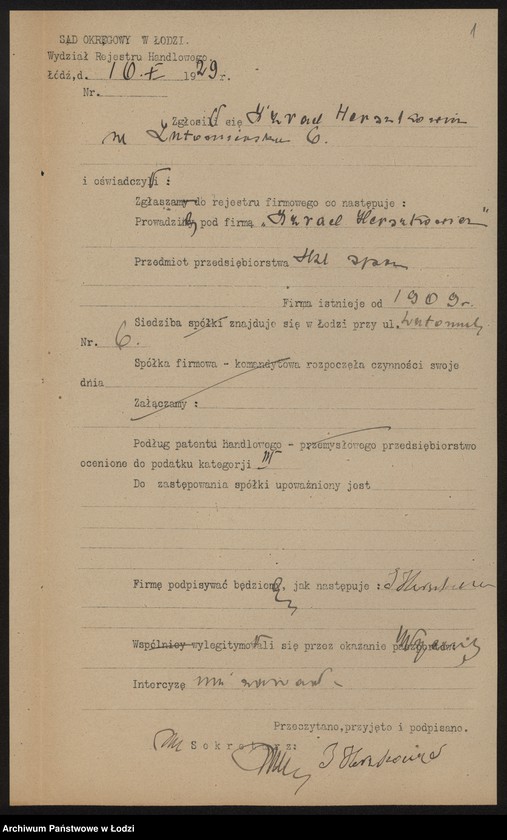 1
SĄD OKRĘGOWY W ŁODZI.
Wydział Rejestru Handlowego
Łódź, d. 16 X 1929 r.
Nr.
Zgłosił się Izrael Herszkowicz
Lutomierska 6.
i oświadczył :
Zgłaszamy do rejestru firmowego co następuje :
Prowadzimy pod firmą "Izrael Herszkowicz"
Przedmiot przedsiębiorstwa
Firma istnieje od 1909 r.
Siedziba spółki znajduje się w Łodzi przy ul.
Nr. 6.
Spółka firmowa - komandytowa rozpoczęła czynności swoje
dnia
Załączamy :
Podług patentu handlowego - przemysłowego przedsiębiorstwo
ocenione do podatku kategorji III
Do zastępowania spółki upoważniony jest
Firmę podpisywać będzie, jak następuje : I Herszkowicz
Wspólnicy wylegitymowali się przez okazanie
Intercyzę nie zawarł
Przeczytano, przyjęto i podpisano.
Sekretarz:
I Herszkowicz
Archiwum Państwowe w Łodzi